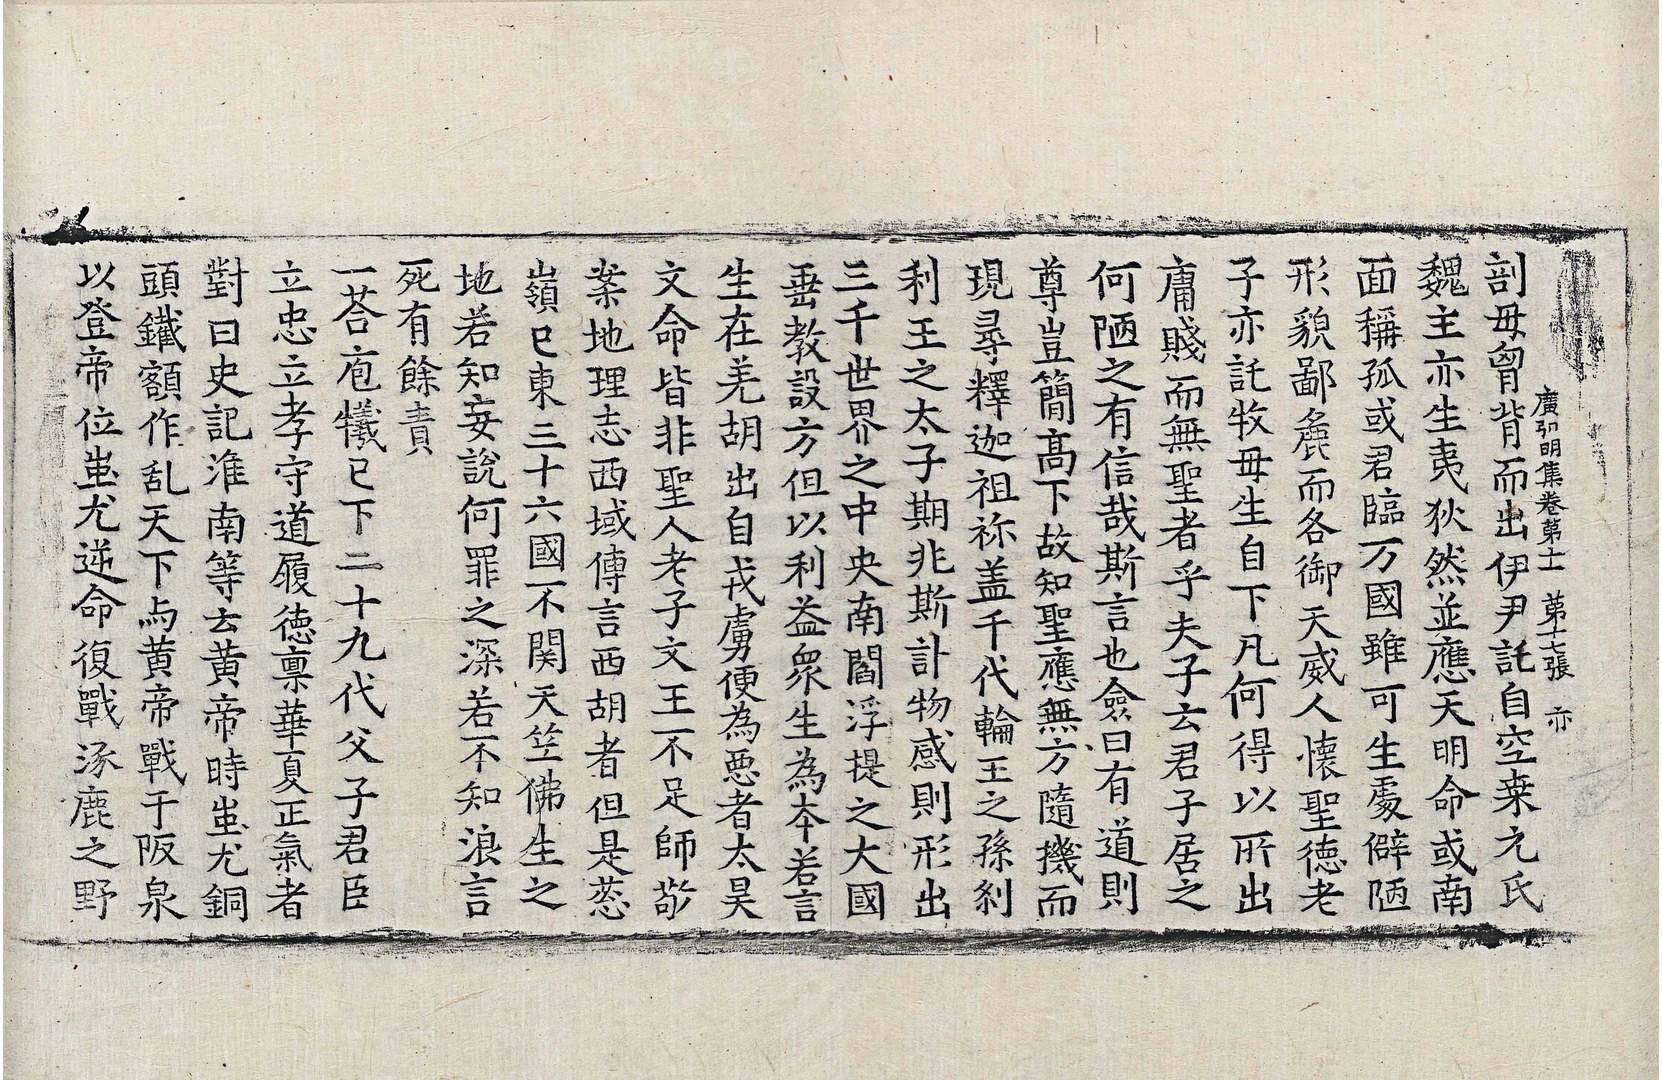 廣弘明集卷第十一 第十七張 亦
剖母胷背而出伊尹託自空桒元氏
魏主亦生夷狄然並應天明命或南
面稱孤或君臨万國雖可生處僻陋
形貌鄙麁而各御天威人懷聖德老
子亦託牧母生自下凡何得以所出
庸賤而無聖者乎夫子云君子居之
何陋之有信哉斯言也僉曰有道則
尊豈簡高下故知聖應無方隨機而
現尋釋迦祖祢盖千代輪王之孫刹
利王之太子期兆斯計物感則形出
三千世界之中央南閻浮提之大國
垂教設方但以利益衆生為本若言
生在羌胡出自戎虜便為惡者太昊
文命皆非聖人老子文王不足師敬
案地理志西域傳言西胡者但是葱
嶺已東三十六國不関天竺佛生之
地若知妄說何罪之深若不知浪言
死有餘責
一荅庖犧已下二十九代父子君臣
立忠立孝守道履德禀華夏正氣者
對曰史記淮南等云黄帝時蚩尤銅
頭鐵額作乱天下与黄帝戰于阪泉
以登帝位蚩尤逆命復戰涿鹿之野